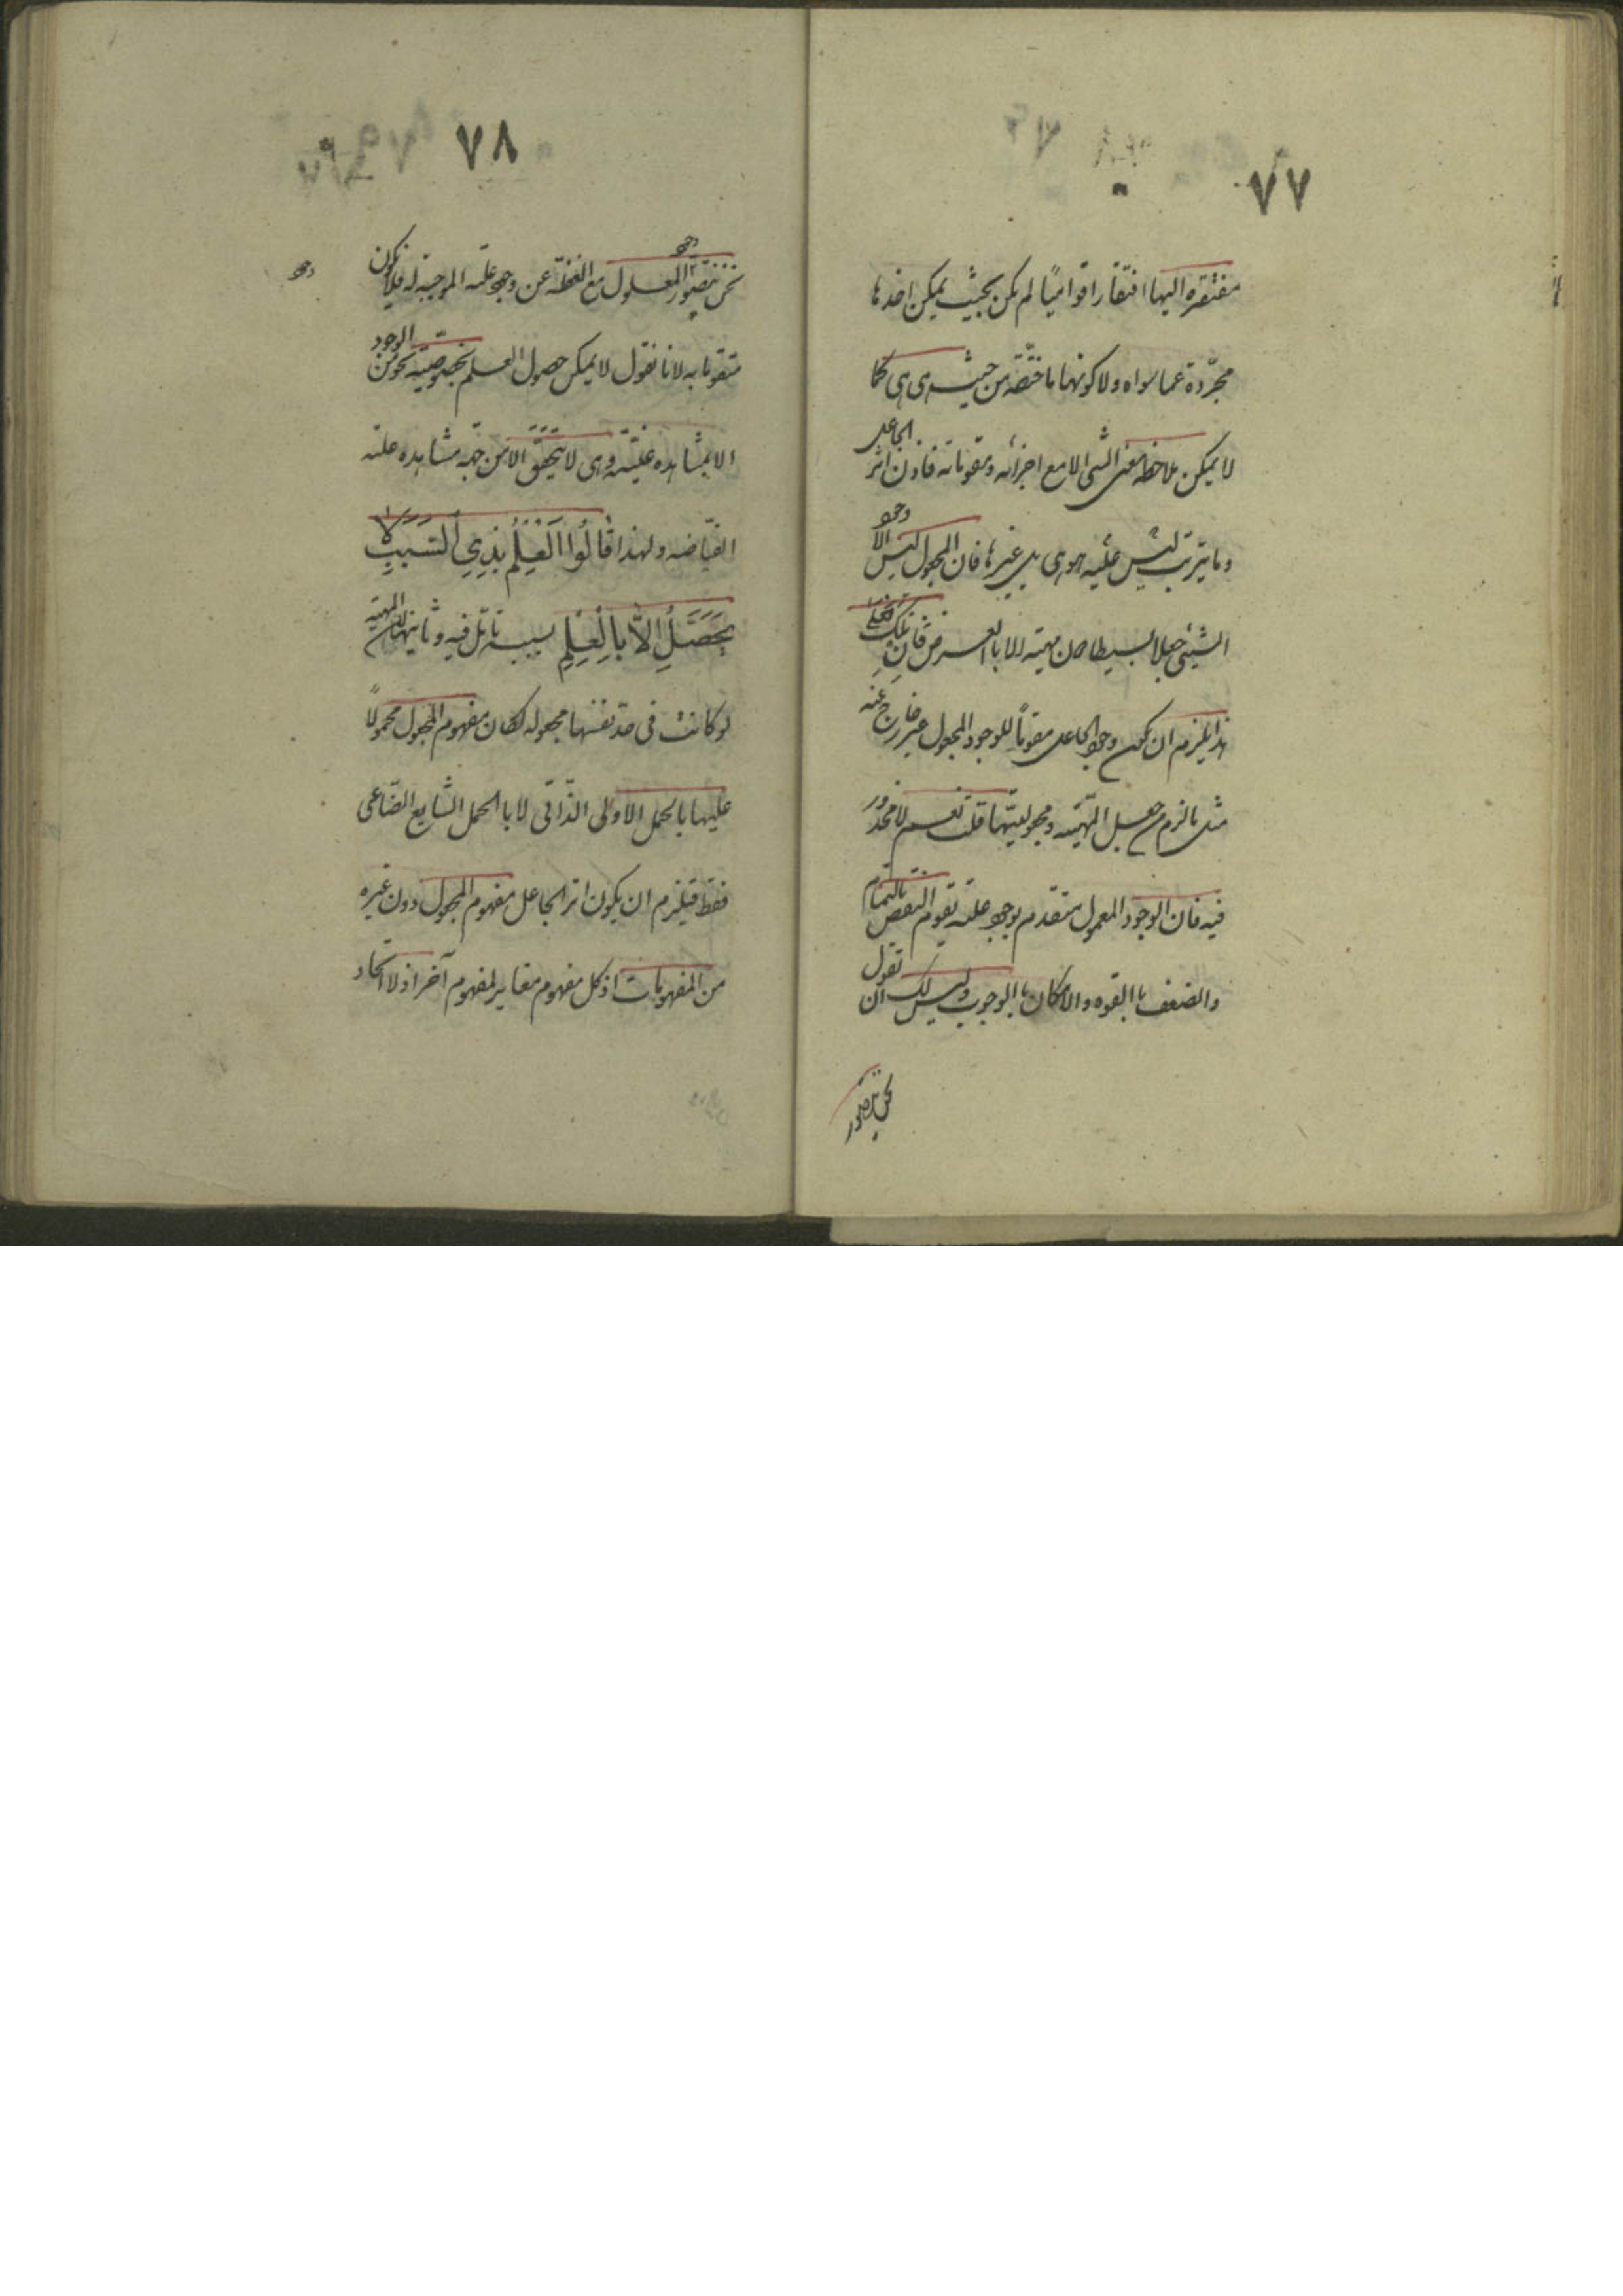 ٧٧
مفتقرة اليها افتقارا قواميا لم يكن بحيث يمكن اخذها
مجردة عما سواه ولا كونها ماخذة من حيث هى هى كما
لا يمكن ملاحظه معنى الشى الا مع اجزائه ومقوماته فاذن اثر الجاعل
وما يترتب عليه ليس هو هى بل غيرها فان المجعول ليس الا وجود
الشيئى جعلا بسيطا دون مهيته الا بالعرض فان قلت فعلى
هذا يلزم ان يكون وجود الجاعل مقوماً للوجود المجعول غير خارج عنه
مثل ما لزم من جعل المهيه ومجعوليتها قلت نعم لا محذور
فيه فان الوجود المعلول متقوم بوجود علته تقوم النقص بالتمام
والضعف با القوه والامكان با الوجوب وليس لك ان تقول
نحن نتصور
٧٨
نحن نتصور وجود المعلول مع الغفلة عن وجود علته الموجبة له فلا يكون
وجود
متقوما به لانا نقول لا يمكن حصول العلم بخصوصيته نحو من الوجود
الا بمشاهده عينيته وهى لا يتحقق الا من جهه مشاهده علته
الفياضه ولهذا قَالُوا العِلمُ بِذِي السَبَبِ لا
يَحصَلُ اِلاَّ بالعِلمِ بسببه تامل فيه وثانيها ان المهيه
لو كانت فى حد نفسها مجعوله لكان مفهوم المجعول محمولاً
عليها بالحمل الاولى الذاتى لا با الحمل الشايع الصناعى
فقط فيلزم ان يكون اثر الجاعل مفهوم المجعول دون غيره
من المفهومات اذ كل مفهوم مغاير لمفهوم آخر اذ لا اتحاد